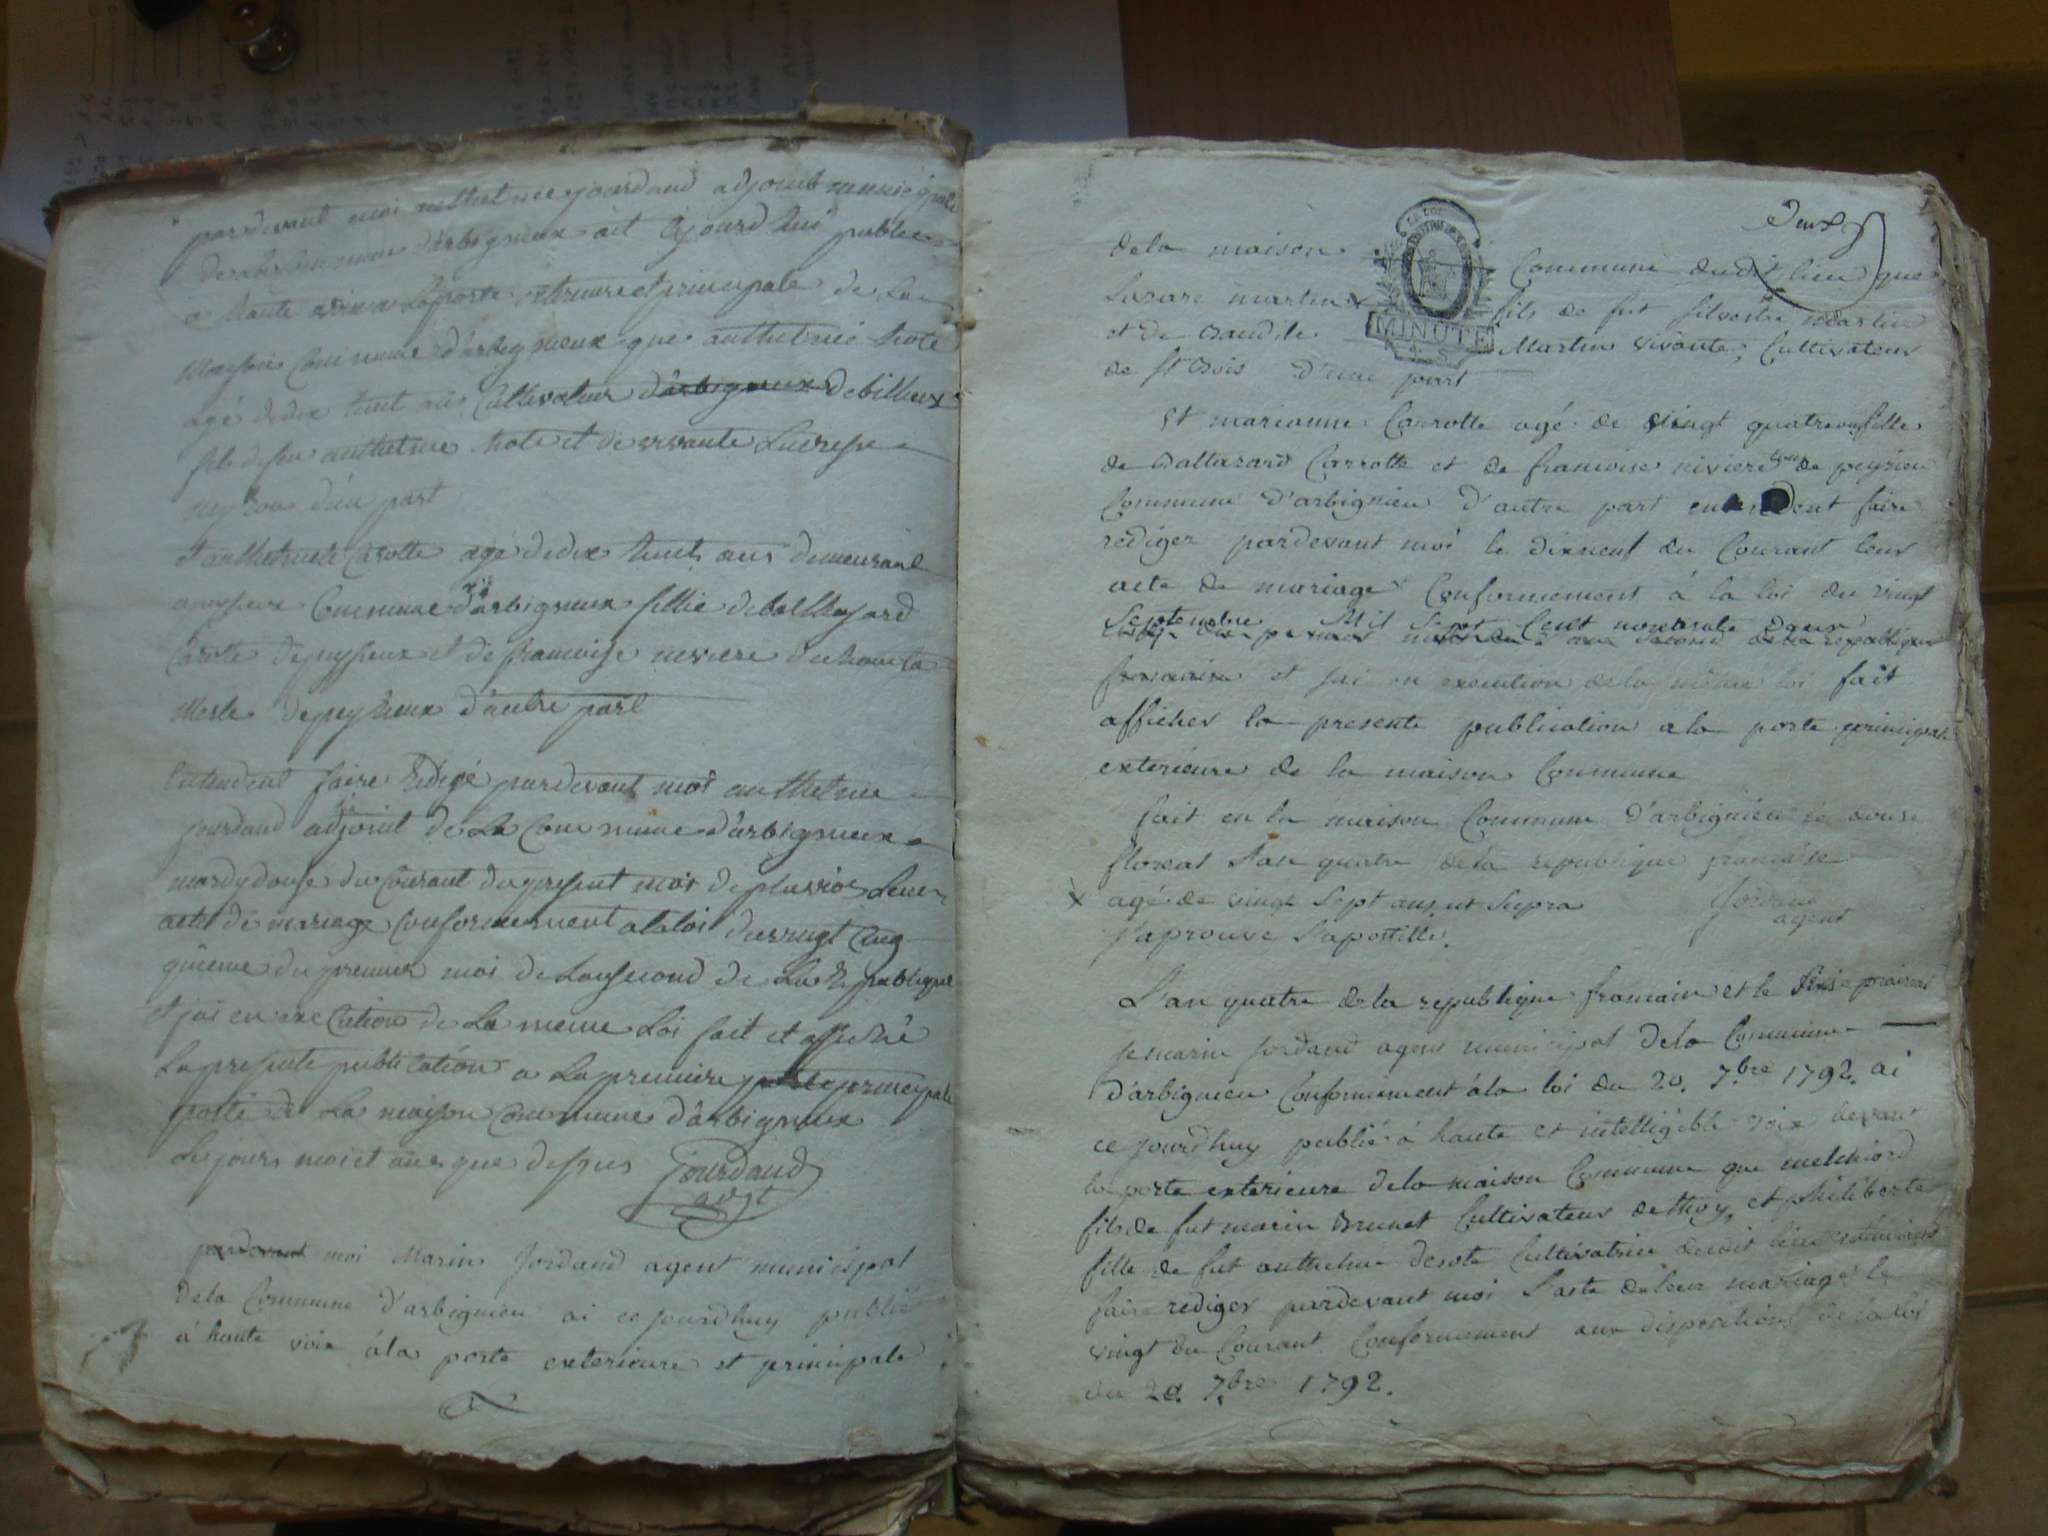 pardevant moi anthelme jourdand adjoint municipale
de la commune d'arbignieux ait ajourd hui publié
a haute voix a la porte exterieure et principale de la
maison commune d'arbignieux que anthelme
agé de dix huit ans cultivateur d'arbignieux de billieux
fils de feu anthelme et de vivante Lucresse
d'un part
et anthelmete Carotte agé de dix huit ans demeurant
a peysieux Commune d'arbignieux fillie de balthasard
Carote de peysieux et de francoise riviere
de peysieux d'autre part
Entendent faire Redigé pardevant moi anthelme
jourdand adjoint de La Commune d'arbignieux
mardy douse du Courant du present mois de pluviose Leur
acte de mariage Conformement a la loi du vingt Cinq
quieme du premier moi de Lan second de La Republique
et jai en execution de La meme Loi fait et affiché
La presente publication a La premiere porte principale
porte de La maison Commune d'arbignieux
Les jours moi et an que dessus Jourdand
agt
pardevant moi Marin Jordand agent municipal
de la Commune d'arbignieu ai ce jourdhuy publié
á haute voix á la porte exterieure et principale
Deux
de la maison Commune dudit lieu que
Lazare martin x fils de fut silvestre martin
et de Claudile Martin vivante, Cultivateur
de st Bois d'une part
MINUTE
Et marianne Carrotte agé de vingt quatre ans fille
de Baltazard Carrotte et de francoise riviere tous de peyzieu
Commune d'arbignieu d'autre part entendent faire
rediger pardevant moi le dixneuf du Courant leur
acte de mariage Conformement á la loi du vingt
Septembre Mil Sept Cent nonante Deux
du premier mois de l'an second de la republique
francaise et jai en execution de la même loi fait
afficher la presente publication a la porte principale
exterieure de la maison Commune
fait en la maison Commune d'arbignieu le douse
floreal L'an quatre de la republique francaise
x agé de vingt Sept ans, ut Supra Jordand
agent
J'aprouve L'apostille.
L'an quatre de la republique francain et le prairial
Je marin Jordand agent municipal de la Commune
d'arbignieu Conformement á la loi du 20. 7.bre 1792. ai
ce jourdhuy publié á haute et intelligible voix devant
la porte exterieure de la maison Commune que melchiord
fils de fut marin Brunet Cultivateur de thoy, et philiberte
fille de fut anthelme Cultivatrice dudit lieu entendent
faire rediger pardevant moi L'acte de leur mariage le
vingt du Courant Conformement aux dispositions de la loi
du 20. 7.bre 1792.